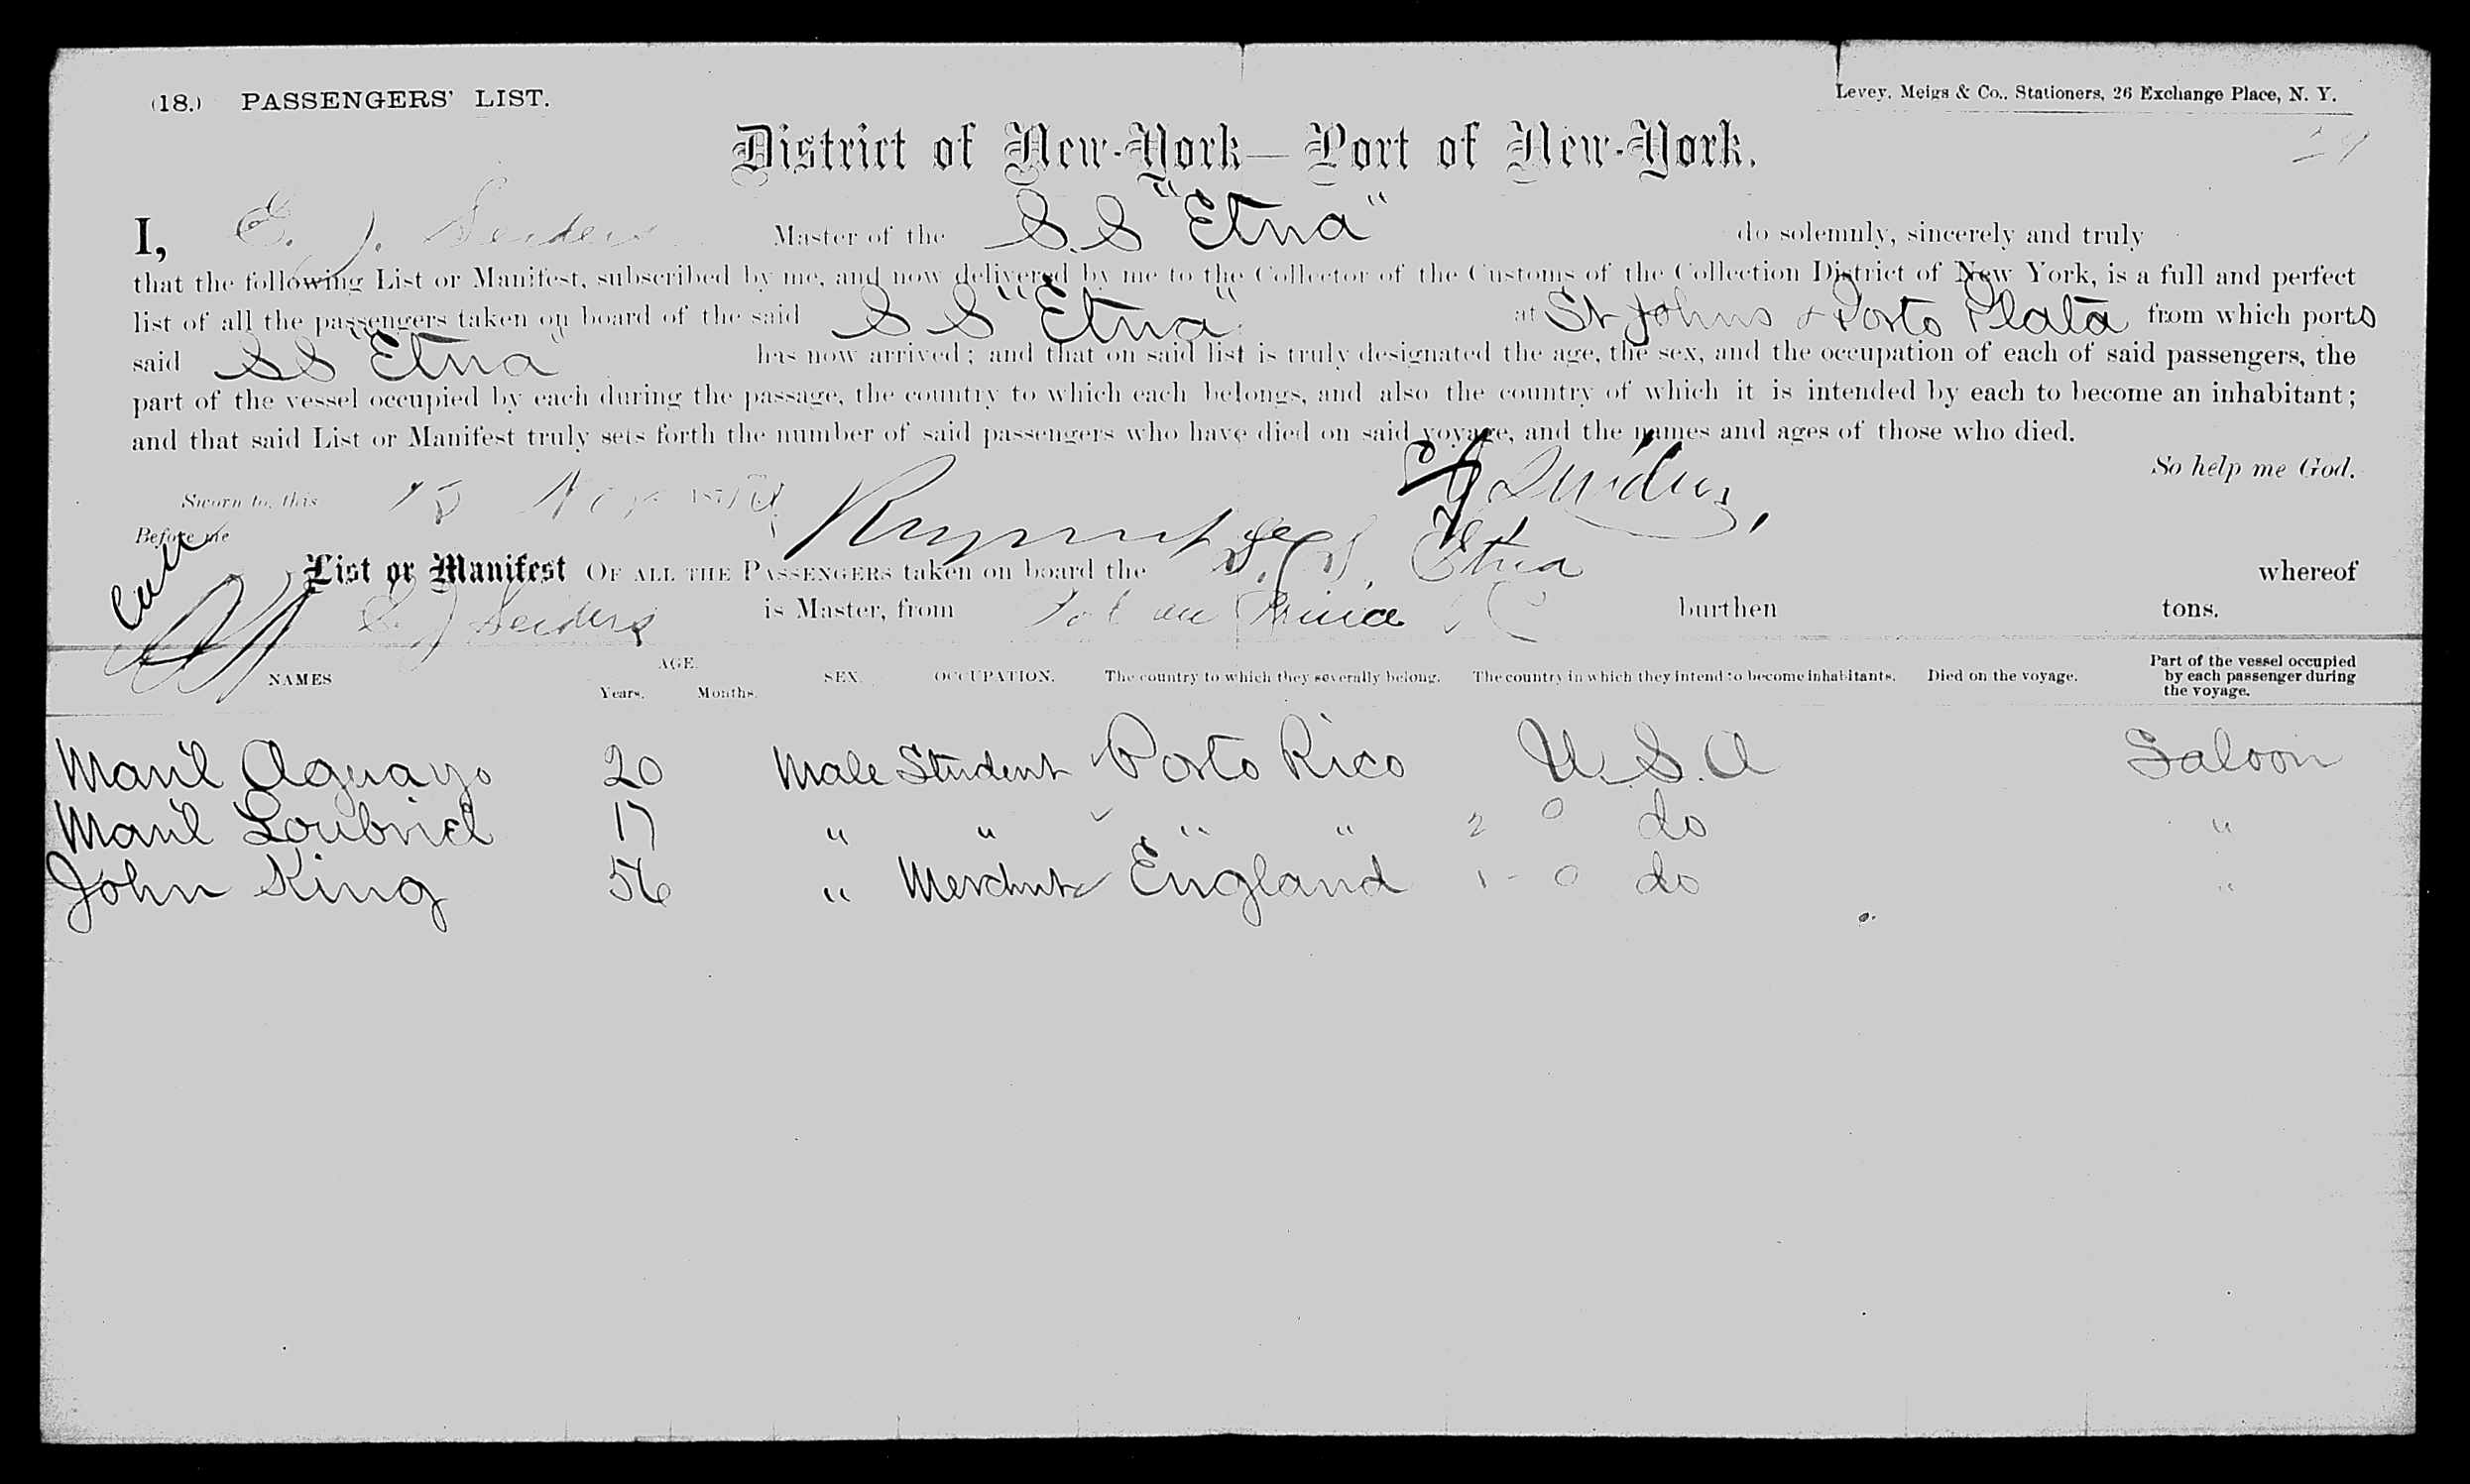 (18.) PASSENGERS' LIST.
Levey, Meigs & Co., Stationers, 26 Exchange Place, N. Y.
District of New-York— Port of New-York.
I, E. J. Seiders Master of the S.S "Etna" do solemnly, sincerely and truly
that the following List or Manifest, subscribed by me, and now delivered by me to the Collector of the Customs of the Collection District of New York, is a full and perfect
list of all the passengers taken on board of the said S S "Etna" at St Johns & Porto Plata from which ports
said SS "Etna" has now arrived; and that on said list is truly designated the age, the sex, and the occupation of each of said passengers, the
part of the vessel occupied by each during the passage, the country to which each belongs, and also the country of which it is intended by each to become an inhabitant;
and that said List or Manifest truly sets forth the number of said passengers who have died on said voyage, and the names and ages of those who died.
So help me God.
Sworn to, this Nov 187
Before me
List or Manifest OF ALL THE PASSENGERS taken on board the S.S. Etna whereof
E J Seiders is Master, from Port au Prince burthen tons.
NAMES AGE. Years. Months. SEX. OCCUPATION. The country to which they severally belong. The country in which they intend to become inhabitants. Died on the voyage. Part of the vessel occupied by each passenger during the voyage.
Manl Aguayo 20 Male Student Porto Rico U.S.A Saloon
Manl Loubriel 17 " " " " 2 0 do "
John King 56 " Merchnt England 1 - 0 do "